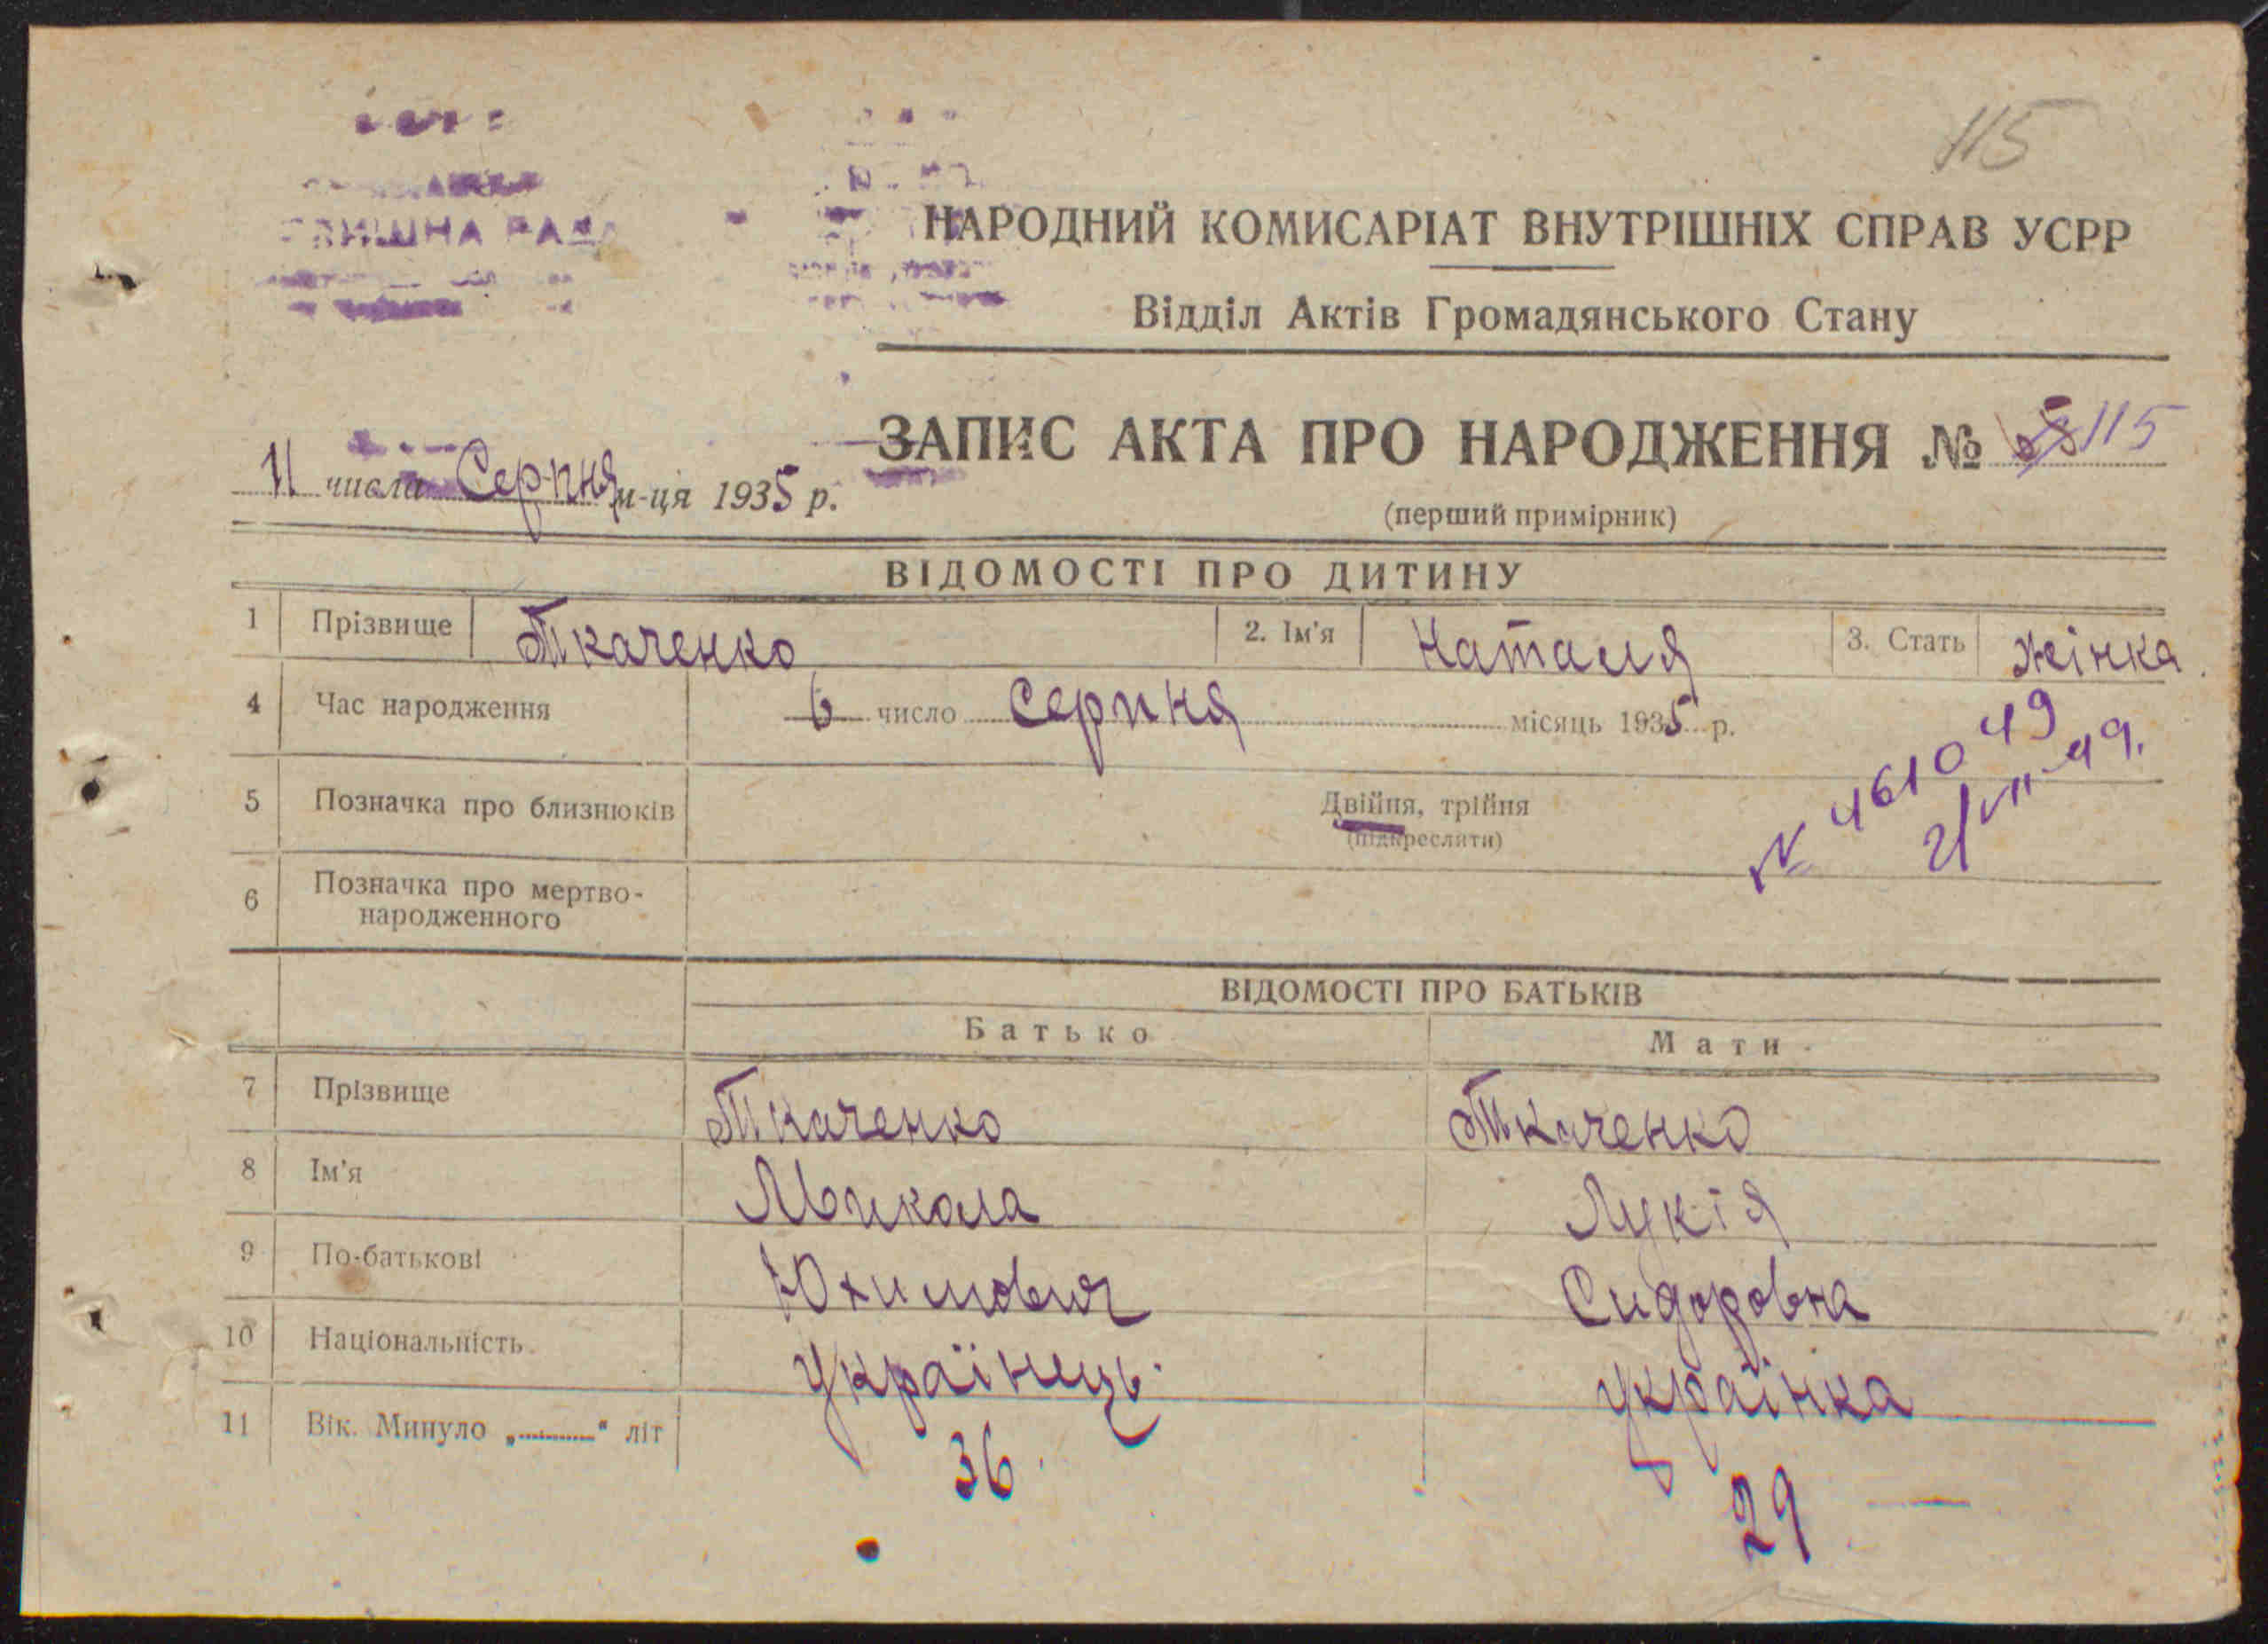 115
РАДА
НАРОДНИЙ КОМИСАРІАТ ВНУТРІШНІХ СПРАВ УСРР
Відділ Актів Громадянського Стану
ЗАПИС АКТА ПРО НАРОДЖЕННЯ № 115
11 числа Серпня м-ця 1935 р.
(перший примірник)
ВІДОМОСТІ ПРО ДИТИНУ
1 Прізвище Ткаченко 2. Ім'я Наталя 3. Стать жінка
4 Час народження 6 число Серпня місяць 1935 р.
№ 461049
21/VII-49.
5 Позначка про близнюків Двійня, трійня
(підкреслити)
6 Позначка про мертво-
народженного
ВІДОМОСТІ ПРО БАТЬКІВ
Батько Мати
7 Прізвище Ткаченко Ткаченко
8 Ім'я Микола Лукія
9 По-батькові Юхимович Сидоровна
10 Національність Українець Українка
11 Вік. Минуло „..........“ літ 36 29